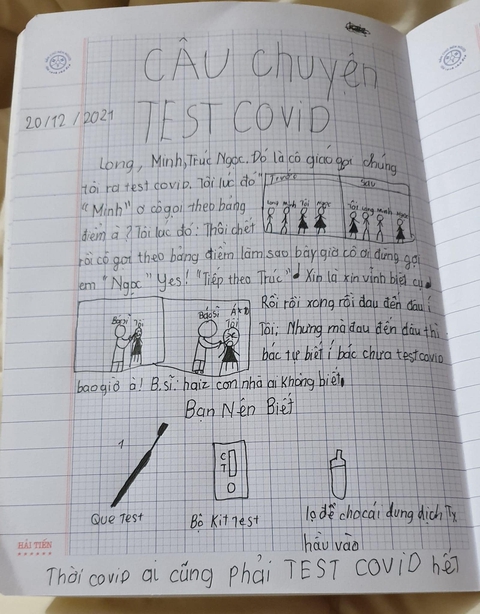 CÂU Chuyện
20/12/2021
TEST COVID
Long, Minh, Trúc Ngọc. Đó là cô giáo gọi chúng
tôi ra test covid. Tôi lúc đó
Trước
Sau
Long Minh Tôi Ngọc
Tôi Long Minh Ngọc
"Minh" ơ cô gọi theo bảng
điểm à? Tôi lúc đó: Thôi chết
rồi cô gọi theo bảng điểm làm sao bây giờ cô ơi đừng gọi
em "Ngọc" Yes! "Tiếp theo Trúc" Xin là xin vĩnh biệt cụ
Bác sĩ Tôi
Bác sĩ
Tôi
Rồi rồi xong rồi đau đến đâu í
Tôi; Nhưng mà đau đến đâu thì
bác tự biết í bác chưa test covid
bao giờ à! B.sĩ: haiz con nhà ai không biết
Bạn Nên Biết
1
C
T
Que Test
Bộ Kit Test
lọ để cho cái dung dịch Tỵ
hầu vào
HẢI TIẾN
Thời covid ai cũng phải TEST COVID hết